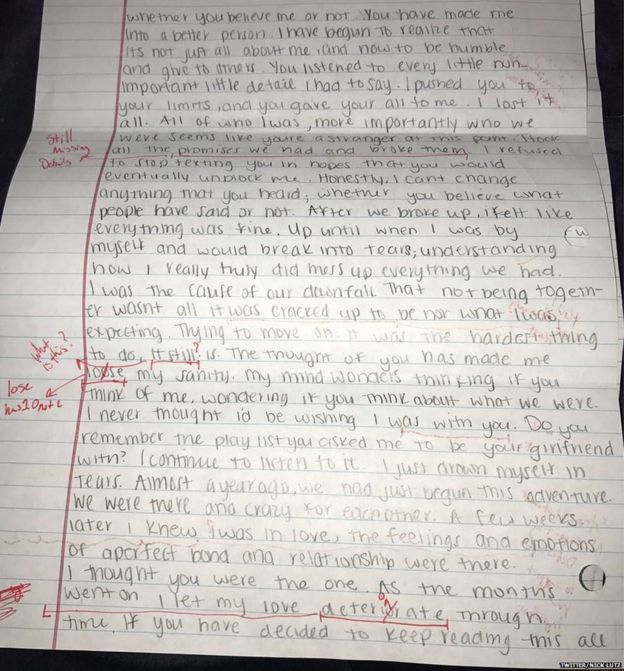 whether you believe me or not. You have made me
into a better person. I have begun to realize that
its not just all about me, and now to be humble
and give to others. You listened to every little nun-
important little detail I had to say. I pushed you to
your limits, and you gave your all to me. I lost it
all. All of who I was, more importantly who we
were seems like youre a stranger at this point. I took
all the promises we had and broke them. I refused
Still
missing
Details
to stop texting you in hopes that you would
eventually unblock me. Honestly, I cant change
anything that you heard, whether you believe what
people have said or not. After we broke up, i felt like
everything was fine. Up until when I was by
w
myself and would break into tears, understanding
how I really truly did mess up everything we had.
I was the cause of our downfall. That not being togeth-
er wasnt all it was cracked up to be nor what I was
expecting. Trying to move on. It was the hardest thing
what
is this?
to do, it still? is. The thought of you has made me
lose
has 1 O not 2
loose my sanity. My mind wonders thinking if you
think of me, wondering if you think about what we were.
I never thought i'd be wishing I was with you. Do you
remember the play list you asked me to be your girlfriend
with? I continue to listen to it. I just drown myself in
tears. Almost a year ago, we had just begun this adventure.
We were there and crazy for eachother. A few weeks
later I knew I was in love, the feelings and emotions
of a perfect bond and relationship were there.
I thought you were the one. As the months
went on I let my love deteriorate through
time. If you have decided to keep reading this all
TWITTER/NICK LUTZ